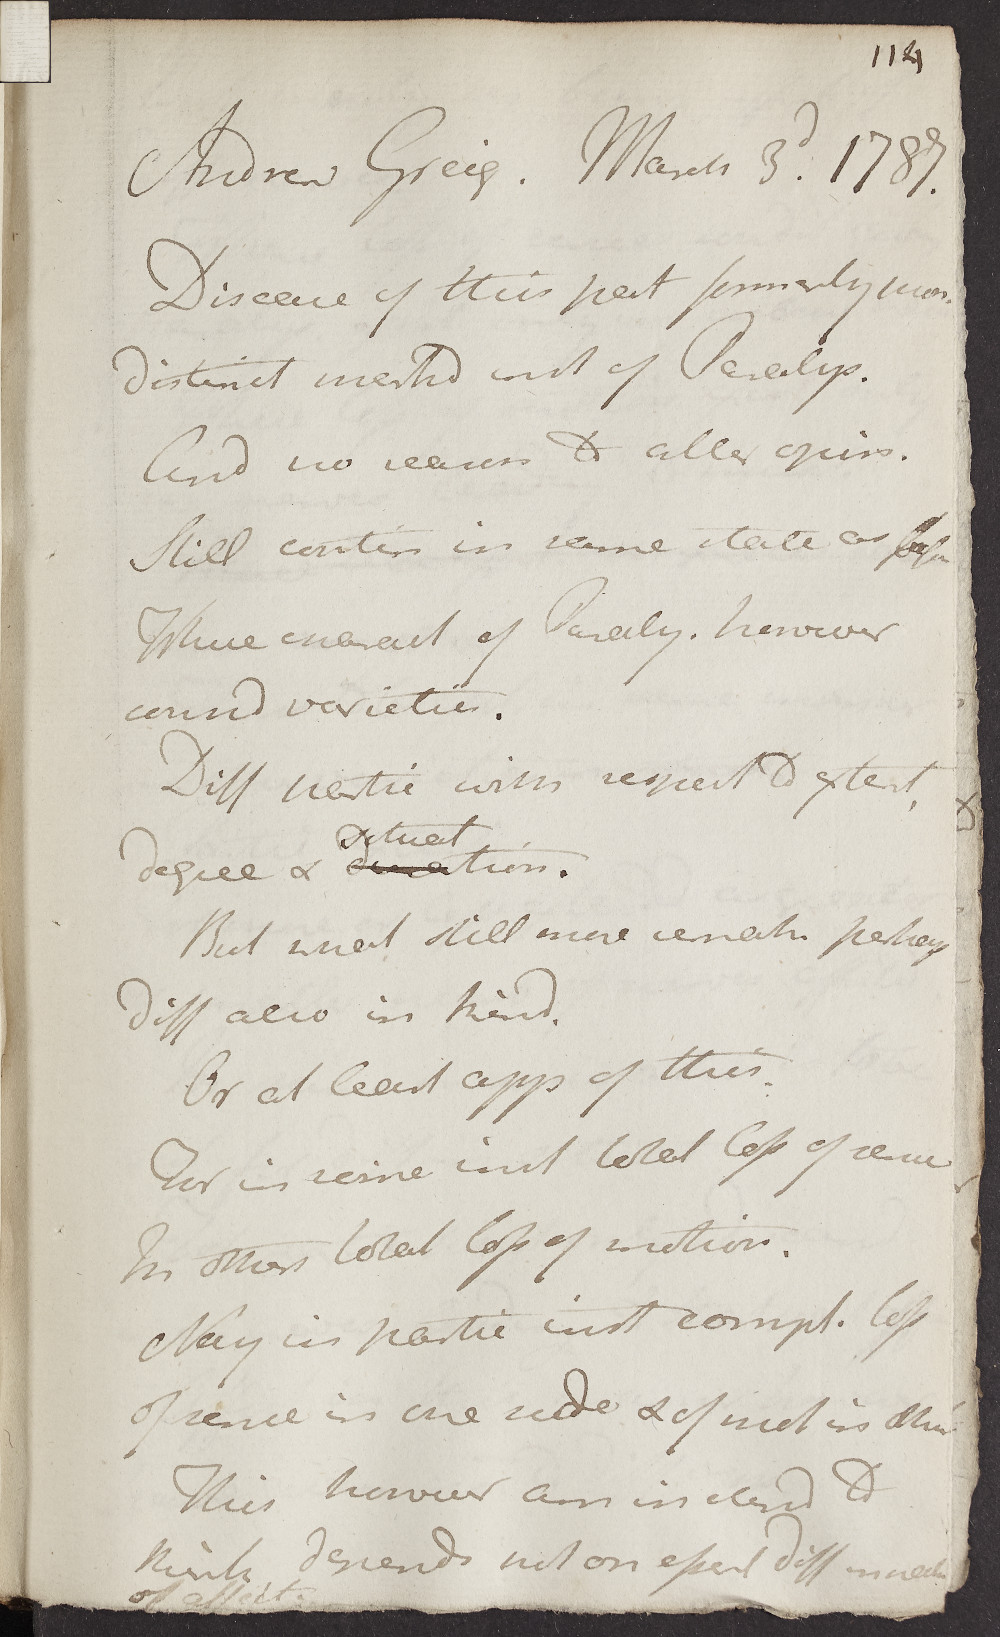 114
Andrew Greig. March 3d. 1787.
Disease of this pat formerly pron.
distinct markd inst of Paralys.
And no reason to alter opin.
Still contin in same state as befor
Whue charact of Paraly. however
sound varieties.
Diff partic with respect to extent,
degree & situat
duration.
But what still more remark perhaps
diff also in kind.
Or at least app of this.
For in some inst total loss of sense
In others total loss of motion.
Nay in partic inst compl. loss
of sense in one side & of mot in other
This however am inclend to
think depends not on essent diff
of affect.